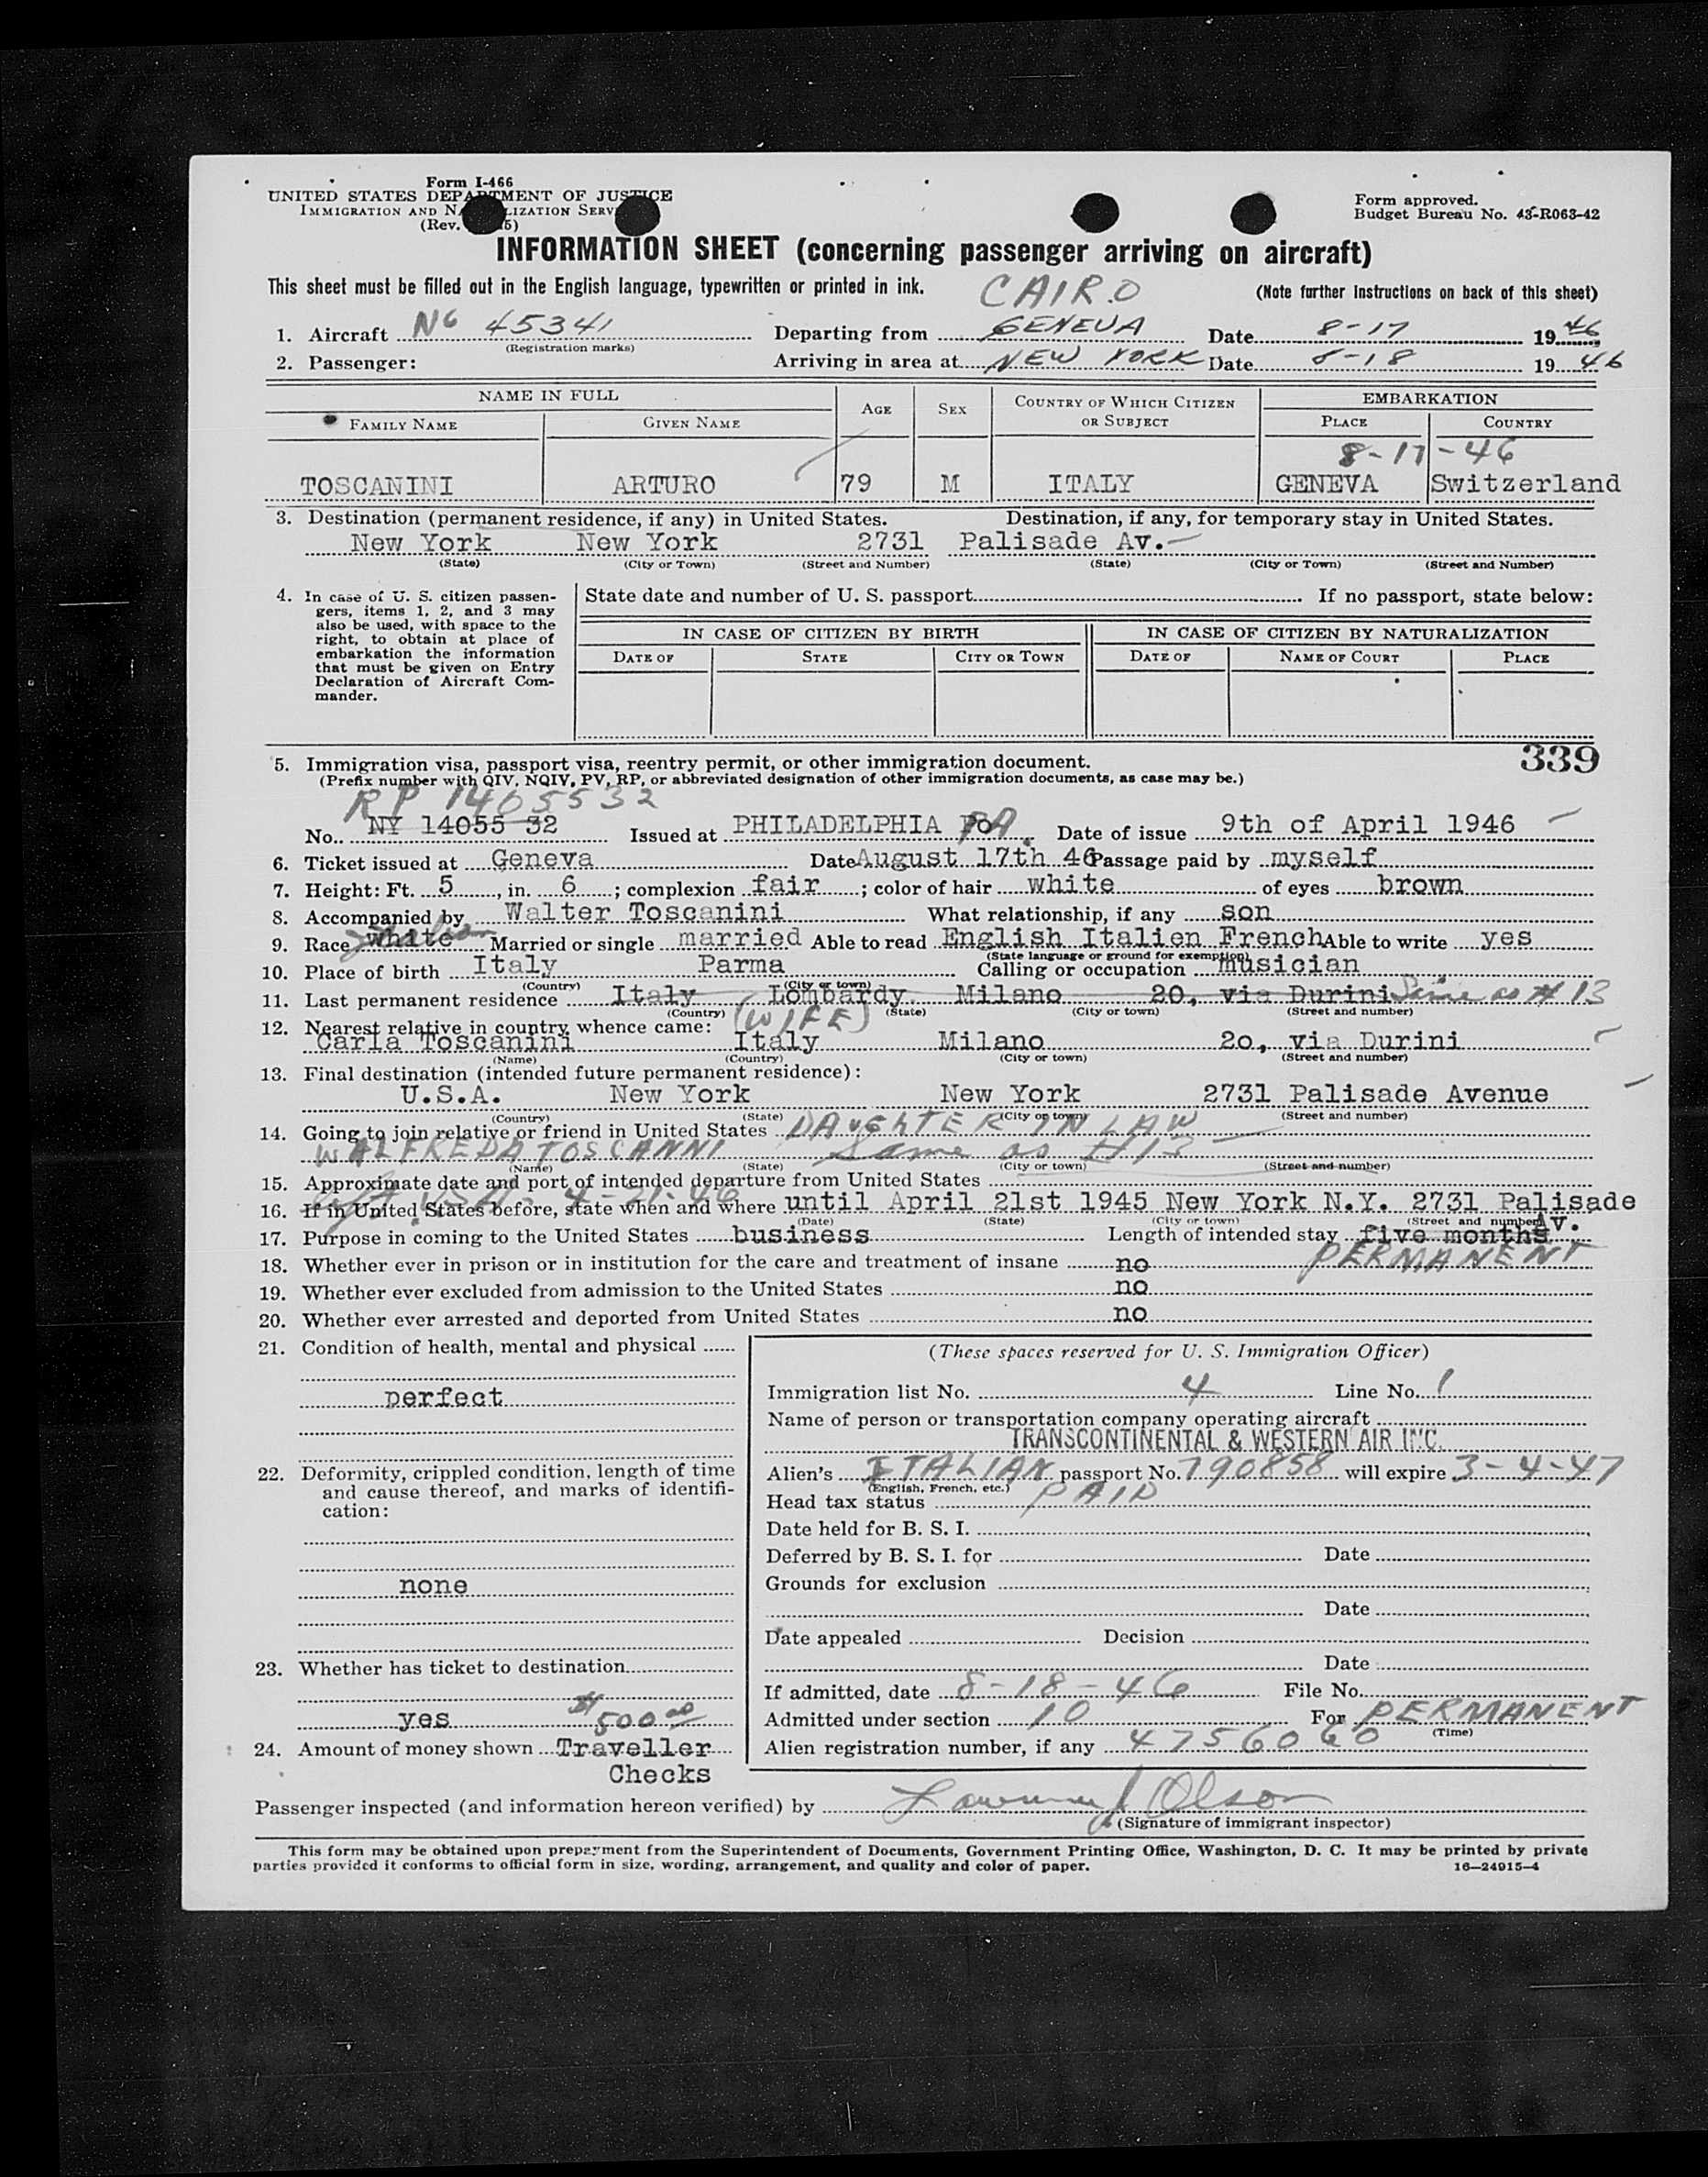 Form I-466
UNITED STATES DEPARTMENT OF JUSTICE
IMMIGRATION AND N LIZATION SERV
(Rev. 5)
Form approved.
Budget Bureau No. 43-R063-42
INFORMATION SHEET (concerning passenger arriving on aircraft)
This sheet must be filled out in the English language, typewritten or printed in ink.
CAIRO
(Note further instructions on back of this sheet)
1. Aircraft NC 45341 Departing from GENEVA Date 8-17 1946
(Registration marks)
2. Passenger: Arriving in area at NEW YORK Date 8-18 1946
NAME IN FULL AGE SEX COUNTRY OF WHICH CITIZEN OR SUBJECT EMBARKATION
FAMILY NAME GIVEN NAME PLACE COUNTRY
8-17-46
TOSCANINI ARTURO 79 M ITALY GENEVA Switzerland
3. Destination (permanent residence, if any) in United States. Destination, if any, for temporary stay in United States.
New York New York 2731 Palisade Av.
(State) (City or Town) (Street and Number) (State) (City or Town) (Street and Number)
4. In case of U. S. citizen passen-
gers, items 1, 2, and 3 may
also be used, with space to the
right, to obtain at place of
embarkation the information
that must be given on Entry
Declaration of Aircraft Com-
mander.
State date and number of U. S. passport If no passport, state below:
IN CASE OF CITIZEN BY BIRTH IN CASE OF CITIZEN BY NATURALIZATION
DATE OF STATE CITY OR TOWN DATE OF NAME OF COURT PLACE
339
5. Immigration visa, passport visa, reentry permit, or other immigration document.
(Prefix number with QIV, NQIV, PV, RP, or abbreviated designation of other immigration documents, as case may be.)
RP 1405532
No. NY 14055 32 Issued at PHILADELPHIA PA. Date of issue 9th of April 1946
6. Ticket issued at Geneva Date August 17th 46 Passage paid by myself
7. Height: Ft. 5, in. 6; complexion fair; color of hair white of eyes brown
8. Accompanied by Walter Toscanini What relationship, if any son
9. Race white Married or single married Able to read English Italien French Able to write yes
(State language or ground for exemption)
10. Place of birth Italy Parma Calling or occupation musician
(Country) (City or town)
11. Last permanent residence Italy Lombardy Milano 20, via Durini Same as # 13
(Country) (State) (City or town) (Street and number)
12. Nearest relative in country whence came: (WIFE)
Carla Toscanini Italy Milano 2o, via Durini
(Name) (Country) (City or town) (Street and number)
13. Final destination (intended future permanent residence):
U.S.A. New York New York 2731 Palisade Avenue
(Country) (State) (City or town) (Street and number)
14. Going to join relative or friend in United States DAUGHTER IN LAW
WALFREDA TOSCANNI Same as #13
(Name) (State) (City or town) (Street and number)
15. Approximate date and port of intended departure from United States
Left USA. 4-21-46
16. If in United States before, state when and where until April 21st 1945 New York N.Y. 2731 Palisade Av.
(Date) (State) (City or town) (Street and number)
17. Purpose in coming to the United States business Length of intended stay five months
PERMANENT
18. Whether ever in prison or in institution for the care and treatment of insane no
19. Whether ever excluded from admission to the United States no
20. Whether ever arrested and deported from United States no
21. Condition of health, mental and physical
perfect
22. Deformity, crippled condition, length of time
and cause thereof, and marks of identifi-
cation:
none
23. Whether has ticket to destination
yes $500.00
24. Amount of money shown Traveller
Checks
(These spaces reserved for U. S. Immigration Officer)
Immigration list No. 4 Line No. 1
Name of person or transportation company operating aircraft
TRANSCONTINENTAL & WESTERN AIR INC.
Alien's ITALIAN passport No. 790858 will expire 3-4-47
(English, French, etc.)
Head tax status PAID
Date held for B. S. I.
Deferred by B. S. I. for Date
Grounds for exclusion
Date
Date appealed Decision
Date
If admitted, date 8-18-46 File No.
Admitted under section 10 For PERMANENT
(Time)
Alien registration number, if any 4756060
Passenger inspected (and information hereon verified) by J Olson
(Signature of immigrant inspector)
This form may be obtained upon prepayment from the Superintendent of Documents, Government Printing Office, Washington, D. C. It may be printed by private
parties provided it conforms to official form in size, wording, arrangement, and quality and color of paper.
16—24915-4